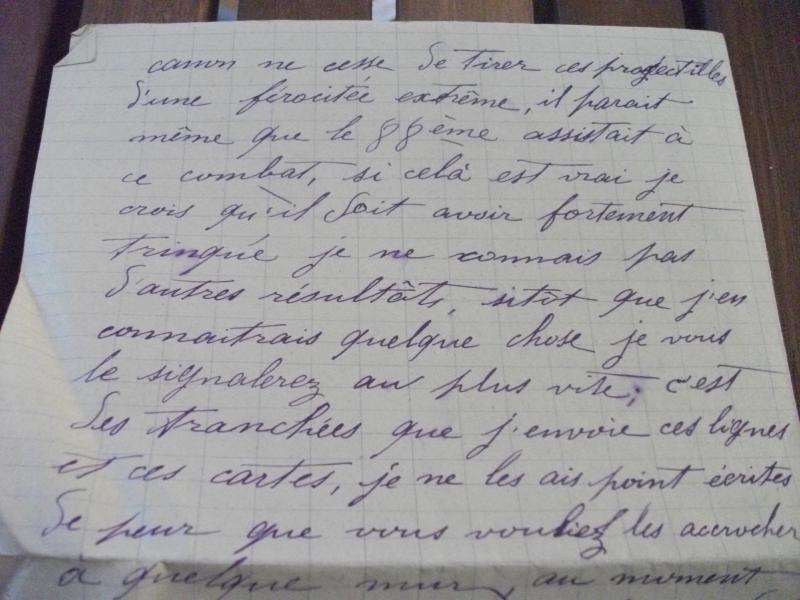 canon ne cesse de tirer ces projectiles
d'une férocitée extrême, il parait
même que le 88ème assistait à
ce combat, si celà est vrai je
crois qu'il doit avoir fortement
trinqué je ne connais pas
d'autres résultâts, sitôt que j'en
connaitrais quelque chose je vous
le signalerez au plus vite; c'est
des tranchées que j'envoie ces lignes
et ces cartes, je ne les ais point écrites
de peur que vous vouliez les accrocher
à quelque mur, au moment